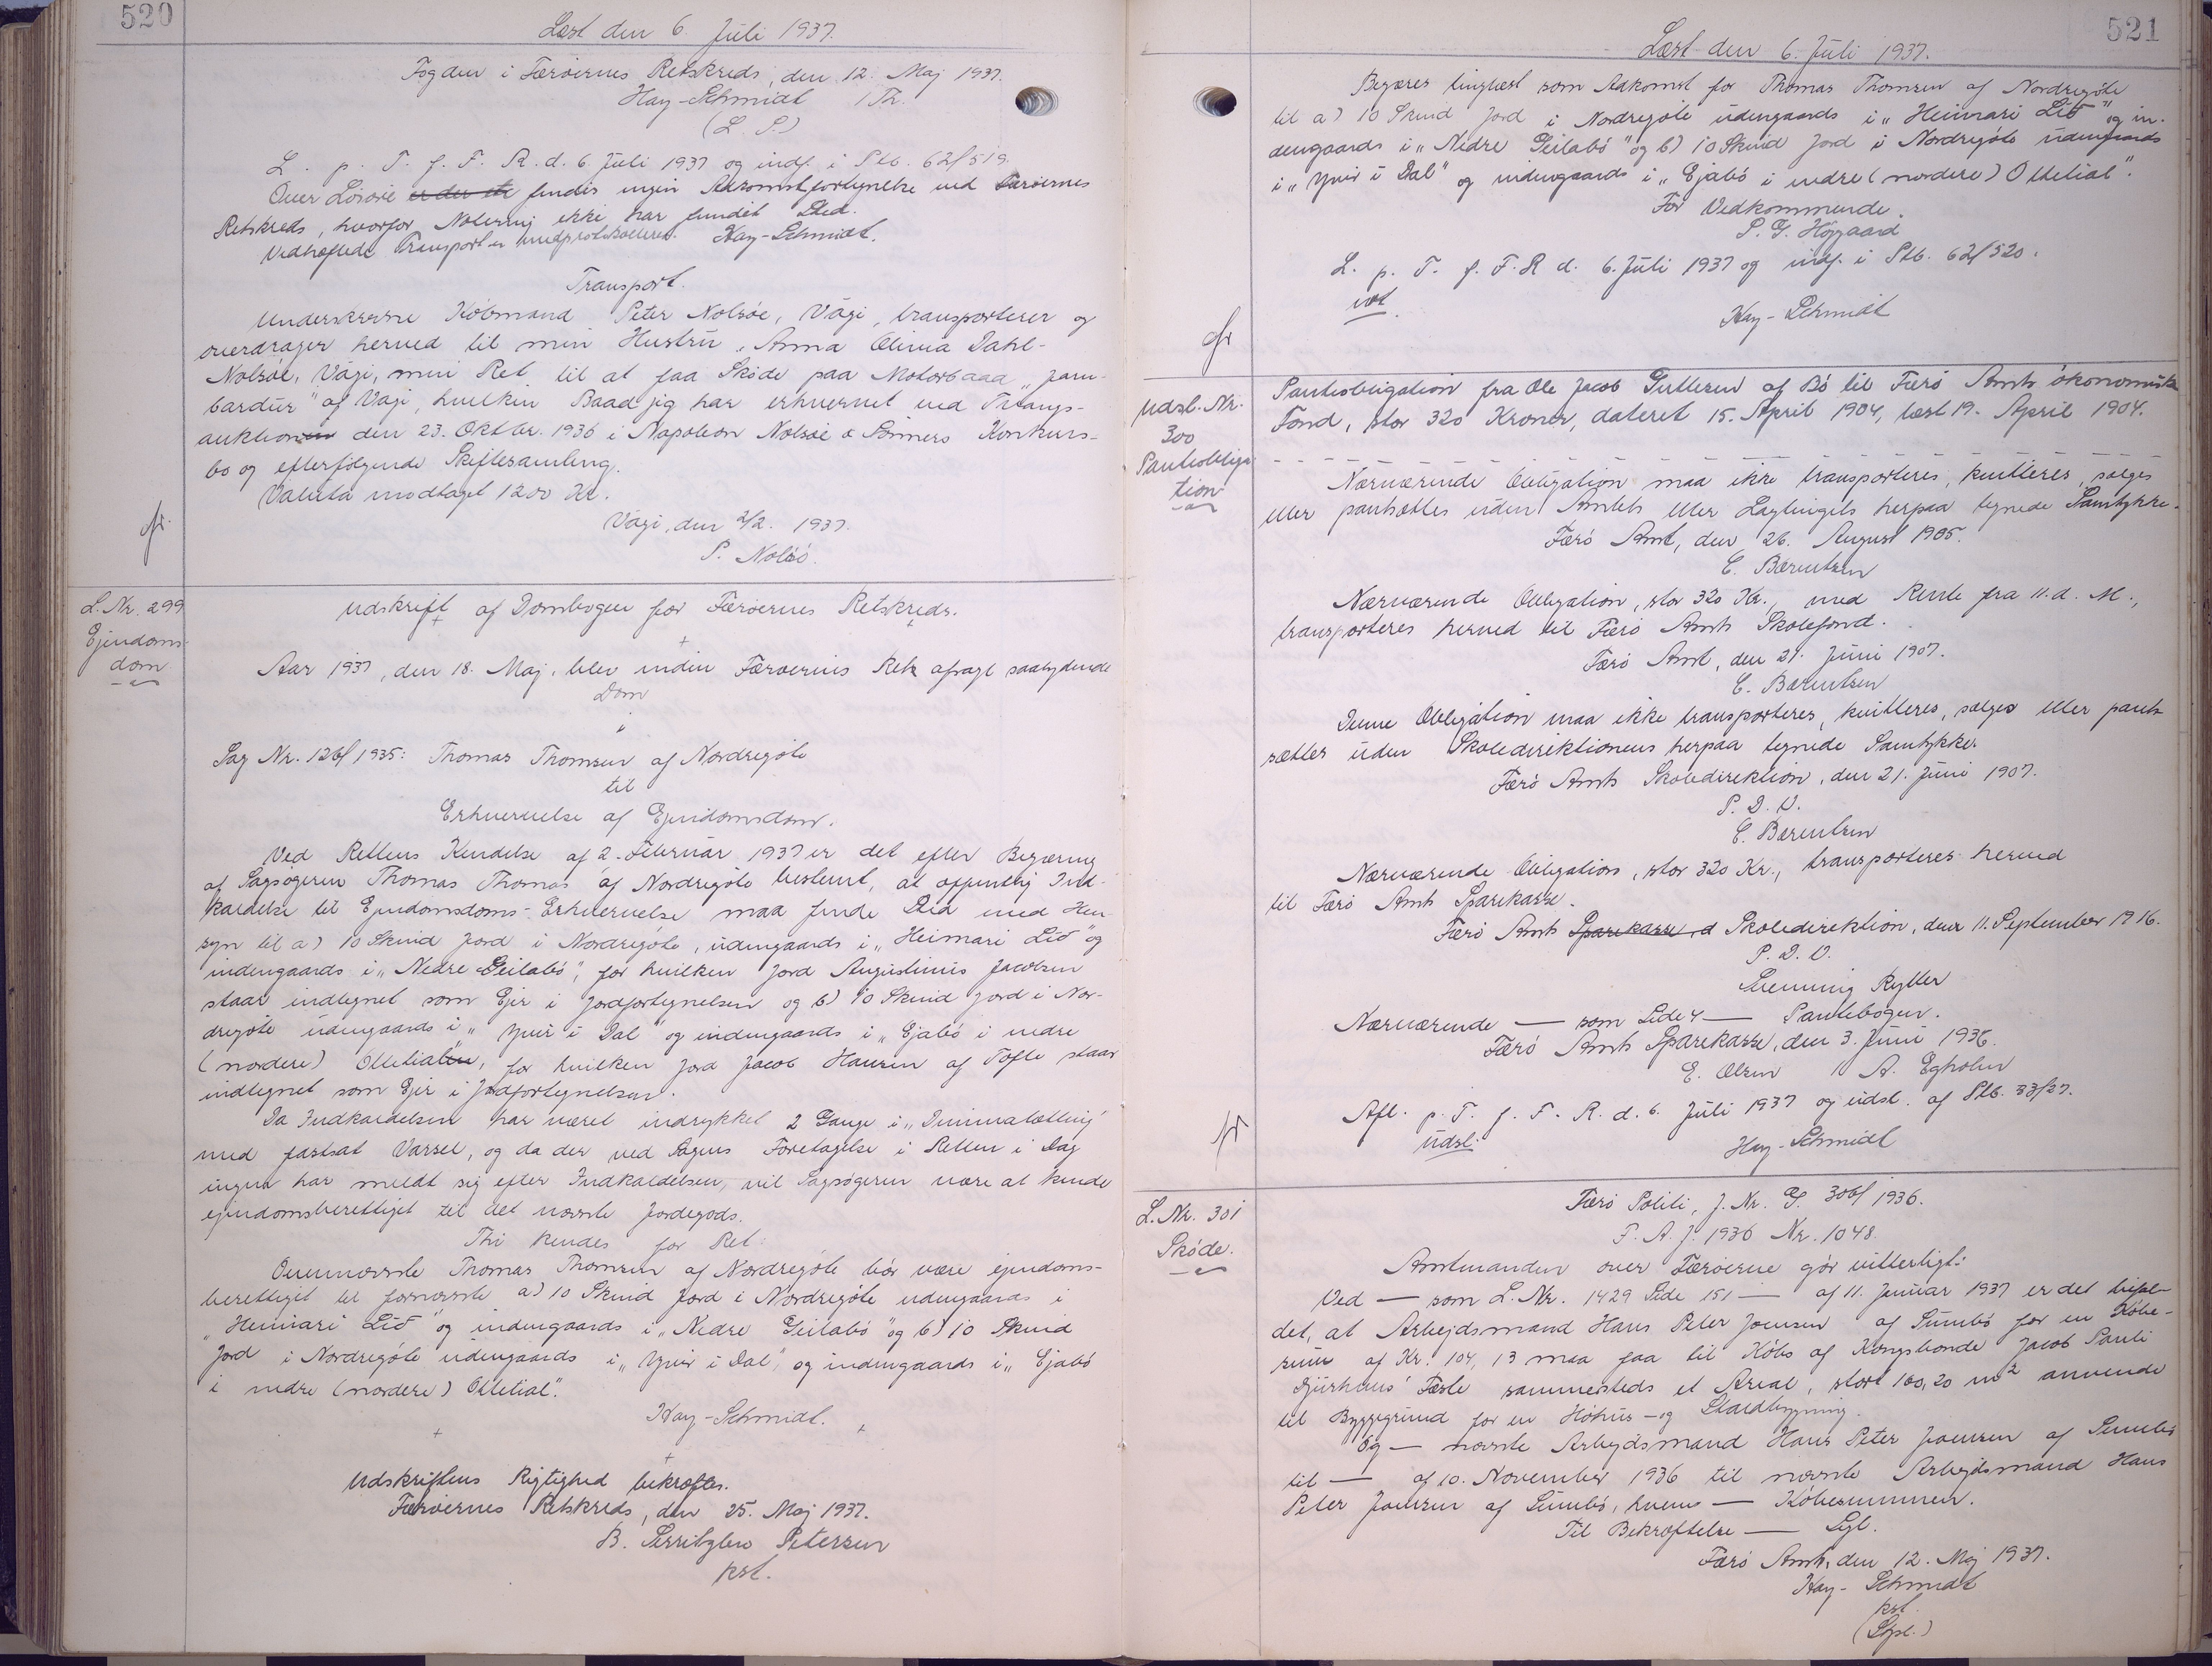 520
Læst den 6. Juli 1937.
Fogden i Færøernes Retskreds, den 12. Maj 1937.
Hay-Schmidt / Th.
(L. S.)
L. p. T. f. F. R. d. 6. Juli 1937 og indf. i Ptb. 62/519.
Over Lösöre er der ete findes ingen Adkomstfortegnelse ved Færöernes
Retskreds, hvorfor Notering ikke har fundet Sted.
Vedhæftede Transport er medprotokolleret. Hay-Schmidt.
Transport.
Underskrevne Köbmand Peter Nolsöe, Vági, transporterer og
overdrager herved til min Hustru, Anna Olivia Dahl-
Nolsöe, Vági, min Ret til at faa Sköde paa Motorbaad „Jarn-
bardur" af Vági, hvilken Baad jig har erhvervet ved Tvangs-
auktionen den 23. Oktbr. 1936 i Napoleon Nolsöe & Sönners Konkurs-
bo og efterfölgende Skiftesamling.
Valuta modtaget 1200 Kr.
Vági, den 2/2. 1937.
P. Nolsö.
L. Nr. 299
Ejendoms-
dom
Udskrift af Dombogen for Færöernes Retskreds.
Aar 1937, den 18. Maj, blev inden Færöernes Ret afsagt saalydende
Dom
i
Sag Nr. 126/1935: Thomas Thomsen af Nordregöte
til
Erhvervelse af Ejendomsdom.
Ved Rettens Kendelse af 2. Februar 1937 er det efter Begæring
af Sagsögeren Thomas Thomas af Nordregöte bestemt, at offentlig Ind-
kaldelse til Ejendomsdoms-Erhvervelse maa finde Sted med Hen-
syn til a) 10 Skind Jord i Nordregöte, udengaards i „Heimari Lið" og
indengaards i „Nedre Geilabö", for hvilken Jord Augustinus Jacobsen
staar indtegnet som Ejer i Jordfortegnelsen og b) 10 Skind Jord i Nor-
dregöte udengaards i „Yvir i Dal" og indengaards i „Gjabö i nedre
(nordere) Olletial", for hvilken Jord Jacob Hansen af Tofte staar
indtegnet som Ejer i Jordfortegnelsen.
Da Indkaldelsen har været indrykket 2 Gange i „Dimmalætting"
med fastsat Varsel, og da der ved Sagens Foretagelse i Retten i Dag
ingen har meldt sig efter Indkaldelsen, vil Sagsögeren være at kende
ejendomsberettiget til det nævnte Jordegods.
Thi kendes for Ret:
Ovennævnte Thomas Thomsen af Nordregöte bör være ejendoms-
berettiget til fornævnte a) 10 Skind Jord i Nordregöte udengaards i
„Heimari Lið" og indengaards i „Nedre Geilabö" og b) 10 Skind
Jord i Nordregöte udengaards i „Yvir i Dal", og indengaards i „Gjabö
i nedre (nordere) Olletial".
Hay-Schmidt.
Udskriftens Rigtighed bekræftes.
Færöernes Retskreds, den 25. Maj 1937.
B. Petersen
kst.
521
Læst den 6. Juli 1937.
Begæres tinglæst som Adkomst for Thomas Thomsen af Nordregöte
til a) 10 Skind Jord i Nordregöte udengaards i „Heimari Lið" og in-
dengaards i „Nedre Geilabö" og b) 10 Skind Jord i Nordregöte udengaards
i „Yvir i Dal" og indengaards i „Gjabö i nedre (nordere) Olletial".
For Vedkommende.
P. G. Höjgaard
L. p. T. f. F. R d. 6. Juli 1937 og indf. i Ptb. 62/520.
Hay-Schmidt
Udsl. Nr.
300
Panteobliga
tion
Panteobligation fra Ole Jacob Gutteren af Bö til Færö Amts ökonomiske
Fond, stor 320 Kroner, dateret 15. April 1904, læst 19. April 1904.
Nærværende Obligation maa ikke transporteres, kvitteres, sælges
eller pantsættes uden Amtets eller Lagtingets herpaa tegnede Samtykke.
Færö Amt, den 26. August 1905.
C. Bærentsen
Nærværende Obligation, stor 320 Kr., med Rente fra 11. d. M.,
transporteres herved til Færö Amts Skolefond.
Færö Amt, den 21. Juni 1907.
C. Bærentsen
Denne Obligation maa ikke transporteres, kvitteres, sælges eller pant-
sættes uden Skoledirektionens herpaa tegnede Samtykke.
Færö Amts Skoledirektion, den 21. Juni 1907.
P. D. V.
C. Bærentsen
Nærværende Obligation, stor 320 Kr., transporteres herved
til Færö Amts Sparekasse.
Færö Amts Sparekasse, d Skoledirektion, den 11. September 1916.
P. D. V.
Svenning Rytter
Nærværende — som Side 4 — Pantebogen.
Færö Amts Sparekasse, den 3. Juni 1936.
E. Olsen / A. Egholm
Afl. p. T. f. F. R. d. 6. Juli 1937 og udsl. af Ptb. 33/27.
Udsl. Hay-Schmidt
L. Nr. 301
Sköde.
Færö Politi, J. Nr. G. 306/1936.
F. A. J. 1936 Nr. 1048.
Amtmanden over Færöerne gör vitterligt:
Ved — som L. Nr. 1429 Side 151 — af 11. Januar 1937 er det tillad-
det, at Arbejdsmand Hans Peter Joensen af Sumbö for en Köbe-
sum af Kr. 104,13 maa faa til Köbs af Kongsbonde Jacob Pauli
Djurhuus' Fæste sammesteds et Areal, stort 100,20 m² anvendt
til Byggegrund for en Höhus- og Staldbygning.
Og — nævnte Arbejdsmand Hans Peter Joensen af Sumbö
til — af 10. November 1936 til nævnte Arbejdsmand Hans
Peter Joensen af Sumbö, hvems — Köbesummen.
Til Bekræftelse — Segl.
Færö Amt, den 12. Maj 1937.
Hay-Schmidt
kst.
(Segl.)